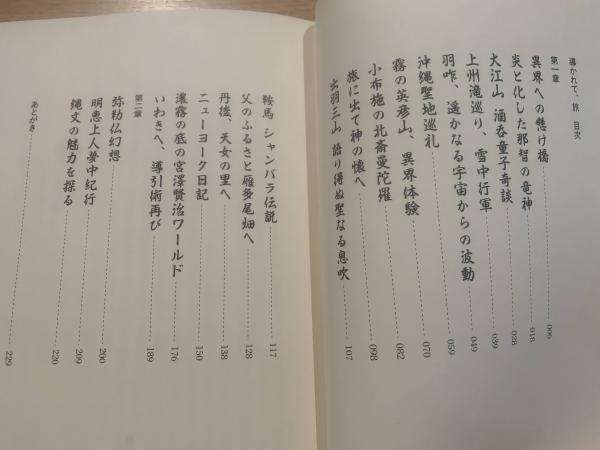 導かれて、旅 目次
第一章
異界への懸け橋 006
炎と化した那智の竜神 018
大江山 酒呑童子奇談 028
上州滝巡り、雪中行軍 039
羽咋、遥かなる宇宙からの波動 049
沖縄聖地巡礼 059
霧の英彦山、異界体験 070
小布施の北斎曼陀羅 082
旅に出て神の懐へ 098
出羽三山 語り得ぬ聖なる息吹 107
鞍馬 シャンバラ伝説 117
父のふるさと雁多尾畑へ 128
丹後、天女の里へ 138
ニューヨーク日記 150
濃霧の底の宮澤賢治ワールド 176
いわきへ、導引術再び 189
第二章
弥勒仏幻想 200
明恵上人夢中紀行 209
縄文の魅力を探る 220
あとがき 229